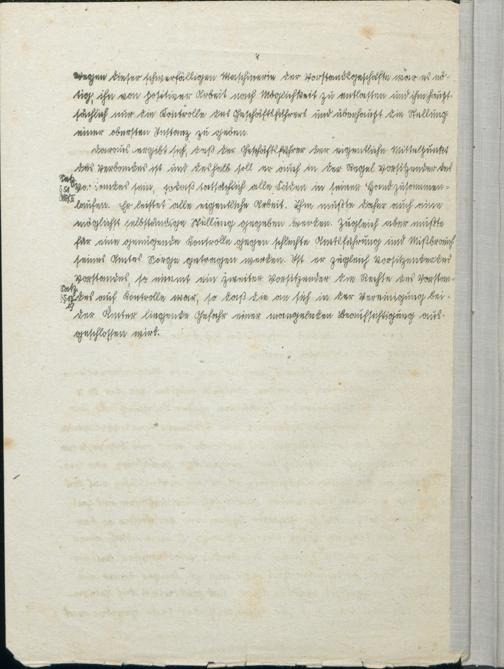 wegen dieser schwerfälligen Maschinerie der Vorstandsgeschäfte war es nö-
tig, ihn von positiver Arbeit nach Möglichkeit zu entlasten und ihm haupt-
sächlich nur die Kontrolle des Geschäftsführers und überhaupt die Stellung
einer obersten Instanz zu geben.
Daraus ergibt sich, daß der Geschäftsführer der eigentliche Mittelpunkt
des Verbandes ist und deshalb soll er auch in der Regel Vorsitzender des
Vorstandes sein, sodaß tatsächlich alle Fäden in seiner Hand zusammen-
laufen. Er leistet alle eigentliche Arbeit. Ihm mußte daher auch eine
möglichst selbständige Stellung gegeben werden. Zugleich aber mußte
für eine genügende Kontrolle gegen schlechte Amtsführung und Mißbrauch
seines Amtes Sorge getragen werden. Ist er zugleich Vorsitzender des
Vorstandes, so nimmt ein zweiter Vorsitzender die Rechte des Vorstan-
des auf Kontrolle war, so daß die an sich in der Vereinigung bei-
der Ämter liegende Gefahr einer mangelnden Beaufsichtigung aus-
geschlossen wird.